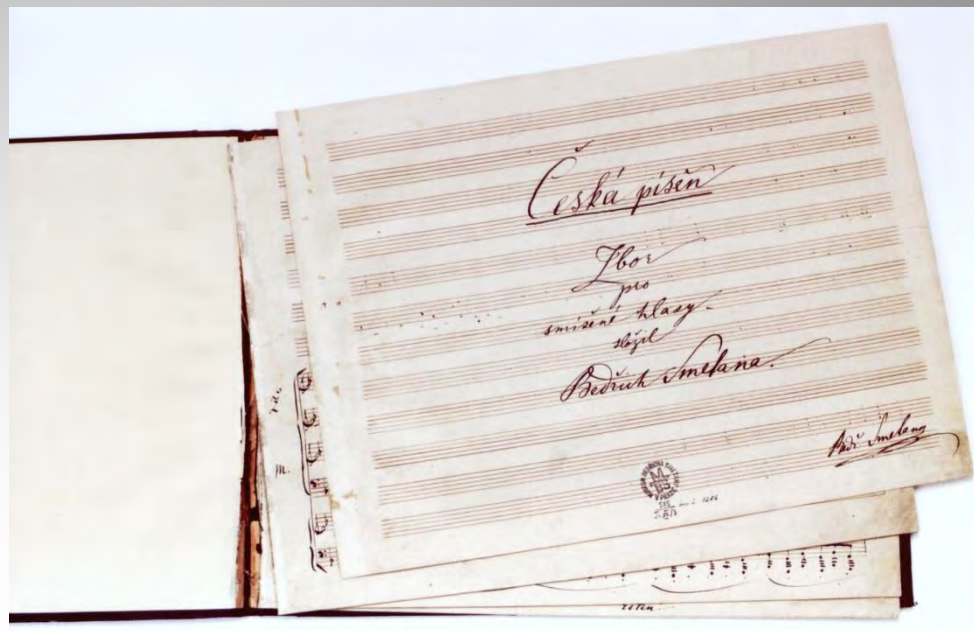 Česká píseň
Sbor
pro
smíšené hlasy.
složil
Bedřich Smetana.
Bedř Smetana